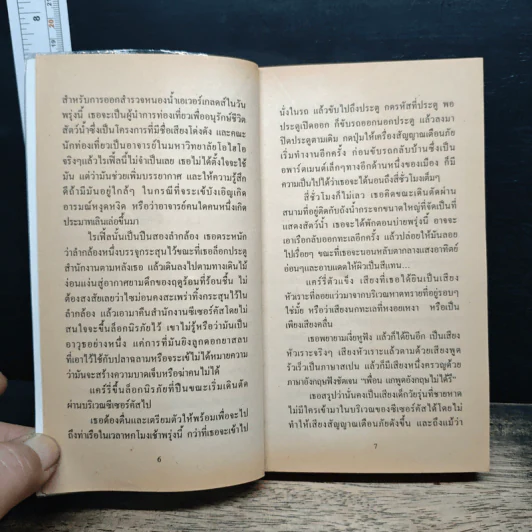 สำหรับการออกสำรวจหนองน้ำเอเวอร์เกลดส์ในวัน
พรุ่งนี้ เธอจะเป็นผู้นำการท่องเที่ยวเพื่ออนุรักษ์ชีวิต
สัตว์น้ำซึ่งเป็นโครงการที่มีชื่อเสียงโด่งดัง และคณะ
นักท่องเที่ยวเป็นอาจารย์ในมหาวิทยาลัยโอไฮโอ
จริงๆแล้วไรเฟิ้ลนี้ไม่จำเป็นเลย เธอไม่ได้ตั้งใจจะใช้
มัน แต่ว่ามันช่วยเพิ่มบรรยากาศ และให้ความรู้สึก
ดีถ้ามีมันอยู่ใกล้ๆ ในกรณีที่จระเข้บังเอิญเกิด
อารมณ์หงุดหงิด หรือว่าอาจารย์คนใดคนหนึ่งเกิด
ประมาทเลินเล่อขึ้นมา
ไรเฟิ้ลนั้นเป็นปืนสองลำกล้อง เธอตระหนัก
ว่าลำกล้องหนึ่งบรรจุกระสุนไว้ขณะที่เธอล็อกประตู
สำนักงานตามหลังเธอ แล้วเดินลงไปตามทางเดินไม้
ย่นแผ่นสู่อากาศยามดึกของฤดูร้อนที่ร้อนชื้น ไม่
ต้องสงสัยเลยว่าไซม่อนคงสะเพร่าทิ้งกระสุนไว้ใน
ลำกล้อง แล้วเอามาคืนสำนักงานซีเซอร์คัสโดยไม่
สนใจจะขึ้นล็อกนิรภัยไว้ เขาไม่รู้หรือว่ามันเป็น
อาวุธอย่างหนึ่ง แค่การที่มันยิงลูกดอกยาสลบ
ที่เอาไว้ใช้กับปลาฉลามหรือจระเข้ไม่ได้หมายความ
ว่ามันจะสร้างความบาดเจ็บหรือฆ่าคนไม่ได้
แคร์รี่ล็อกนิรภัยที่ปืนขณะเริ่มเดินตัด
ผ่านบริเวณซีเซอร์คัสไป
เธอต้องตื่นและเตรียมตัวให้พร้อมเพื่อจะไป
ถึงท่าเรือในเวลาหกโมงเช้าพรุ่งนี้ กว่าที่เธอจะเข้าไป
6
นั่งในรถ แล้วขับไปถึงประตู กดรหัสที่ประตู พอ
ประตูเปิดออก ก็ขับรถออกจากประตู แล้วลงมา
ปิดประตูตามเดิม กดปุ่มให้เครื่องสัญญาณเตือนภัย
เริ่มทำงานอีกครั้ง ก่อนขับรถกลับบ้านซึ่งเป็น
อพาร์ตเมนต์เล็กๆทางอีกด้านหนึ่งของเมือง ก็มี
ความเป็นไปได้ว่าเธอจะได้นอนถึงสี่ชั่วโมงเต็มๆ
สี่ชั่วโมงก็ไม่เลว เธอคิดขณะเดินตัดผ่าน
สนามที่อยู่ติดกับถังน้ำกระจกขนาดใหญ่ที่จัดเป็นที่
แสดงสัตว์น้ำ เธอจะได้พักตอนบ่ายพรุ่งนี้ อาจจะ
เอาเรือกลับออกทะเลอีกครั้ง แล้วปล่อยให้มันลอย
ไปเรื่อยๆ ขณะที่เธอจะนอนหลับตากลางแสงอาทิตย์
อ่อนๆและอาบแดดให้ผิวเป็นสีแทน...
แคร์รี่ตัวแข็ง เสียงที่เธอได้ยินเป็นเสียง
หัวเราะที่ลอยแว่วมาจากบริเวณหาดทรายที่อยู่รอบๆ
ใช่มั้ย หรือว่าเสียงนกทะเลที่หงอยเหงา หรือเป็น
เพียงเสียงคลื่น
เธอพยายามเงี่ยหูฟัง แล้วก็ได้ยินอีก เป็นเสียง
หัวเราะจริงๆ เสียงหัวเราะแล้วตามด้วยเสียงพูด
รัวเร็วเป็นภาษาสเปน แล้วก็มีเสียงหนึ่งครวญด้วย
ภาษาอังกฤษฟังชัดเจน “เพื่อน แกพูดอังกฤษไม่ได้รึ”
เธอสรุปว่านั่นคงเป็นเสียงเด็กวัยรุ่นที่ชายหาด
ไม่มีใครเข้ามาในบริเวณของซีเซอร์คัสได้โดยไม่
ทำให้เสียงสัญญาณเตือนภัยดังขึ้น และถึงแม้ว่า
7
8